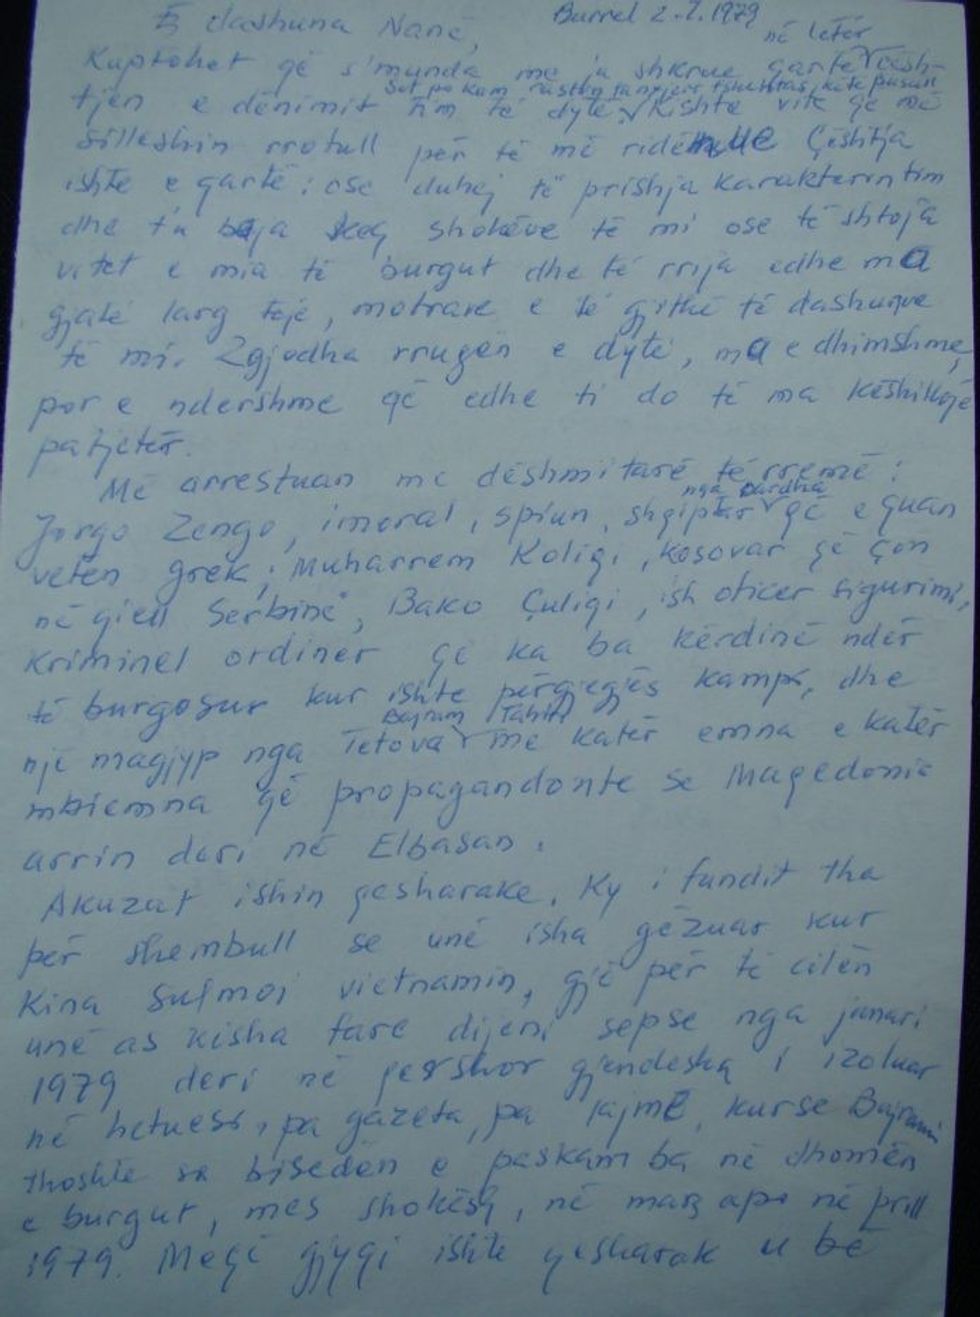 E dashuna Nanë,
Burrel 2.2.1979
në letër
Kuptohet që s'munda me ja shkrue qartë çësh-
Sot po kam rastin tanxjerr fshehtas, këte pusull
tjen e dënimit tim të dytë. Kishte vite që më
silleshin rrotull për të më ridënue Çështja
ishte e qartë: ose duhej të prishja karakterin tim
dhe t'u baja keq shokëve të mi ose të shtoja
vitet e mia të burgut dhe të rrija edhe ma
gjatë larg tejë, motrave e të gjithë të dashunve
të mi. Zgjodha rrugën e dytë, ma e dhimshme,
por e ndershme që edhe ti do të ma këshillojë
patjetër.
Më arrestuan me dëshmitarë të rremë:
nga Dardha
Jorgo Zengo, imoral, spiun, shqiptar që e quan
veten grek; Muharrem Koliqi, kosovar që çon
në qiell Serbinë, Bako Çuliqi, ish oficer sigurimi,
kriminel ordiner që ka ba kërdinë ndër
të burgosur kur ishte përgjegjës kampi, dhe
Bajram Tahiri
një magjyp nga Tetova me katër emna e katër
mbiemna që propagandonte se Maqedonia
arrin deri në Elbasan.
Akuzat ishin qesharake. Ky i fundit tha
për shembull se unë isha gëzuar kur
Kina sulmoi vietnamin, gjë për të cilën
unë as kisha fare dijeni sepse nga janari
1979 deri në qershor gjendesha i izoluar
në hetuesi, pa gazeta, pa lajme, kurse Bajrami
thoshte se bisedën e paskam ba në dhomën
e burgut, mes shokësh, në mars apo në prill
1979. Meqë gjyqi ishte qesharak u bë